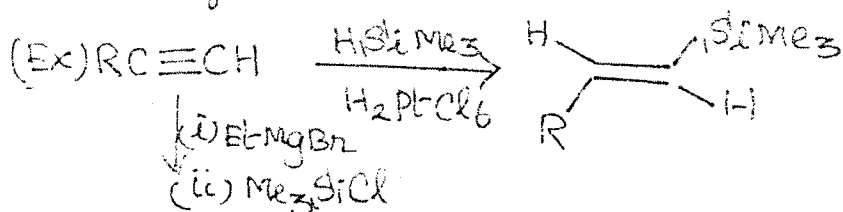 (Ex) RC≡CH
HSiMe3
H2PtCl6
H
SiMe3
R
H
(i) EtMgBr
(ii) Me3SiCl